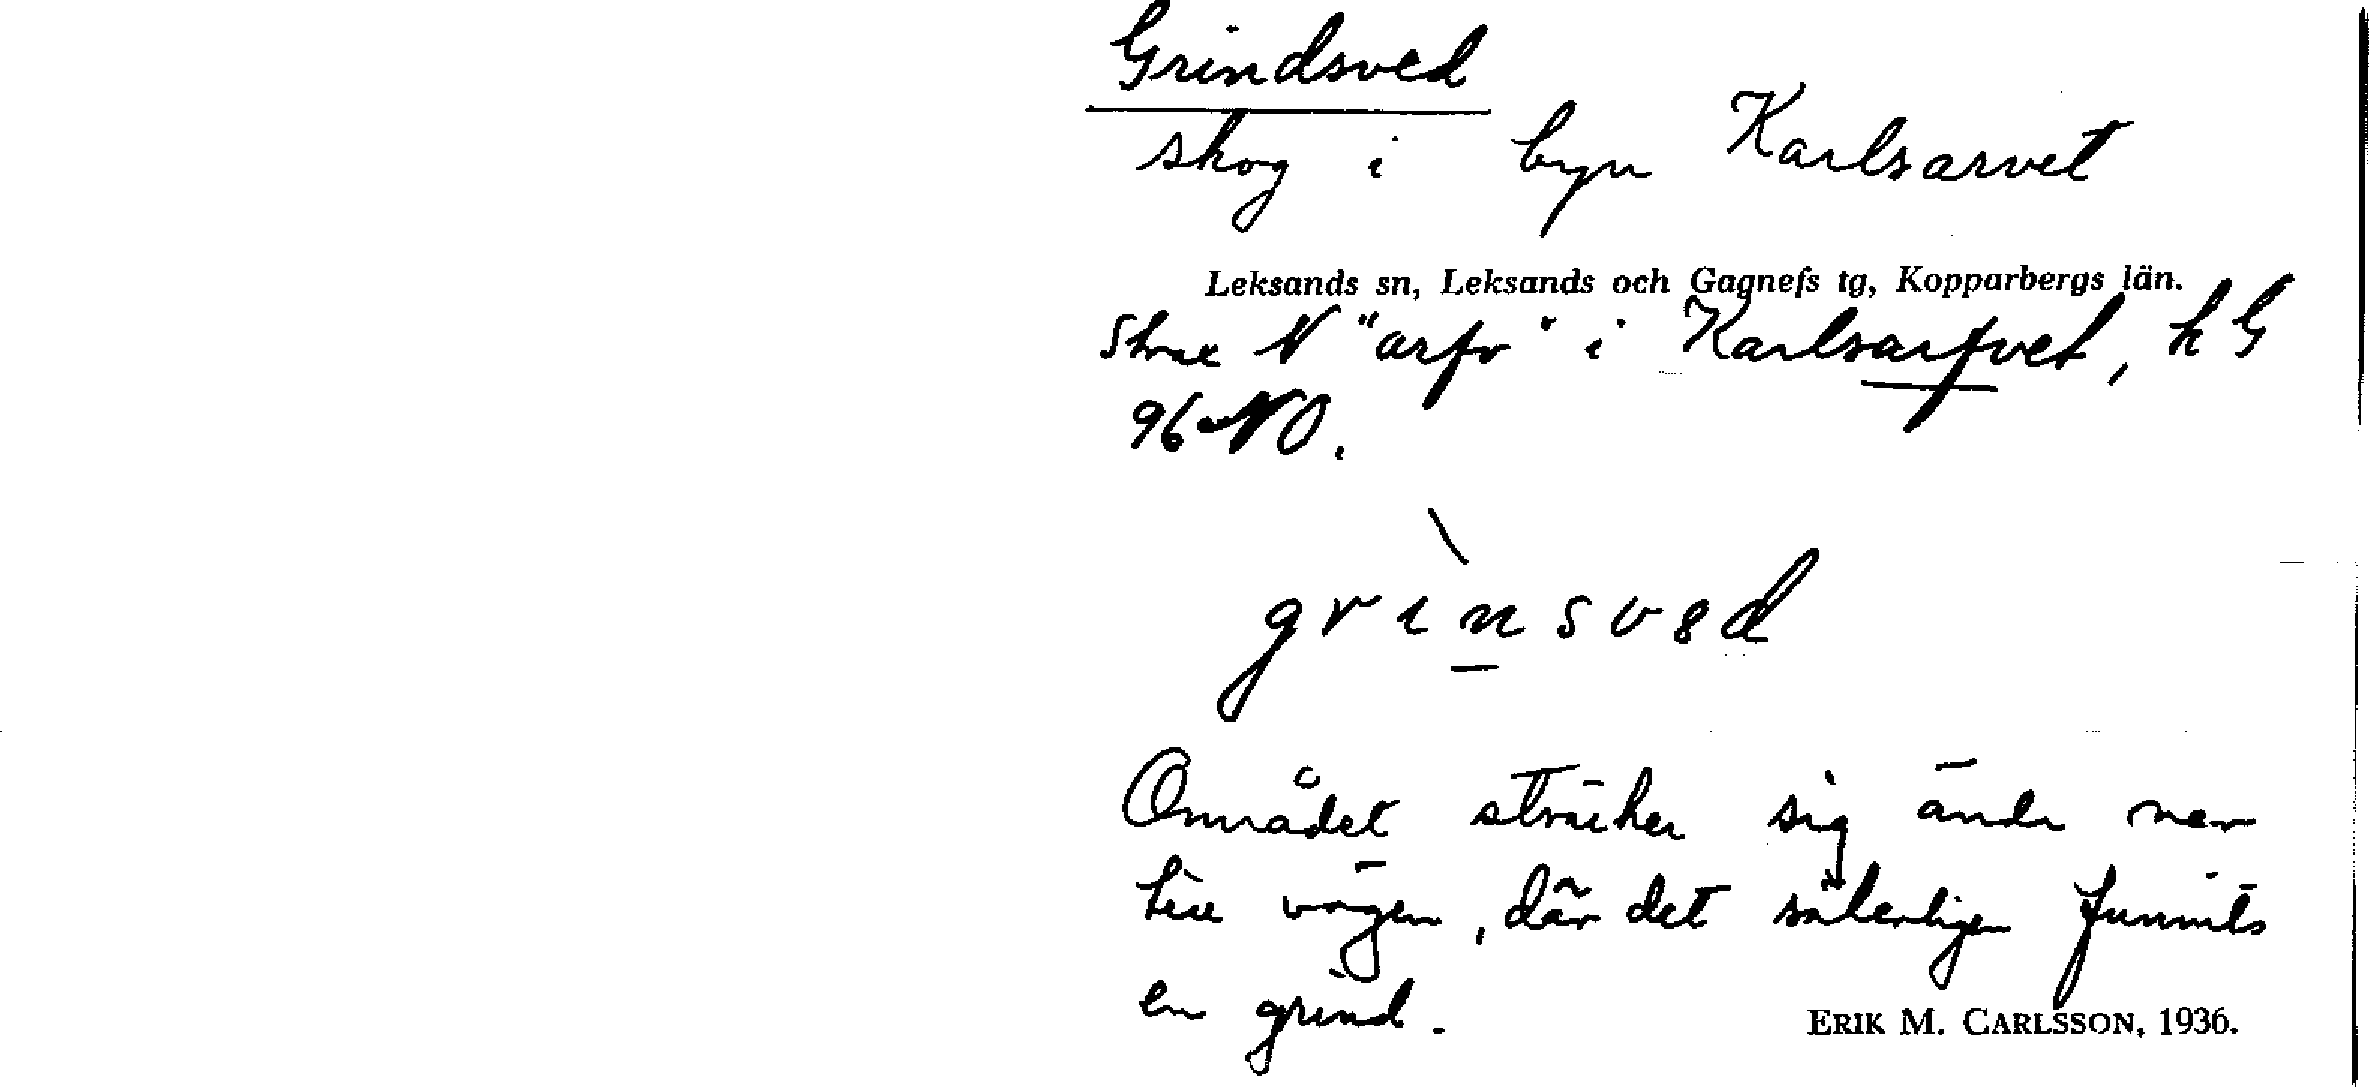 Grindsved
skog i byn Karlsarvet
Leksands sn, Leksands och Gagnefs tg, Kopparbergs län.
Strax N "arfv" i Karlsarfvet, k G
96 NO.
grinsved
Området sträcker sig ända ner
till vägen, där det säkerligen funnits
en grind.
ERIK M. CARLSSON, 1936.